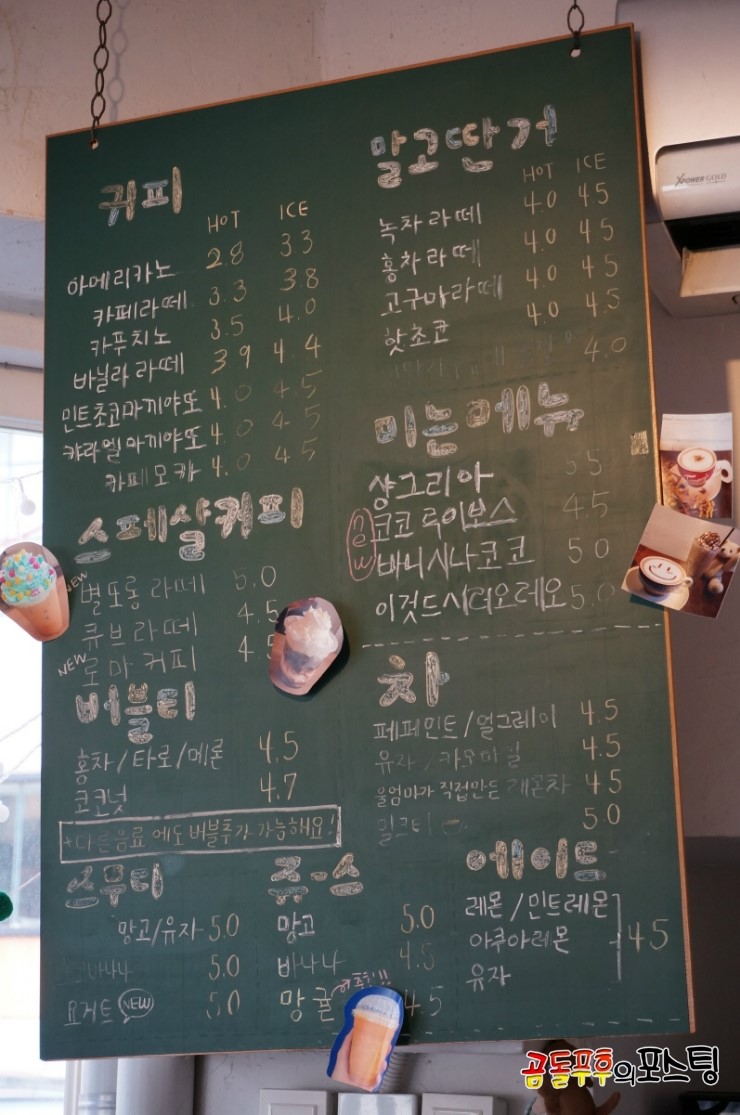 커피
HOT ICE
아메리카노 2.8 3.3
카페라떼 3.3 3.8
카푸치노 3.5 4.0
바닐라 라떼 3.9 4.4
민트초코마끼야또 4.0 4.5
캬라멜마끼야또 4.0 4.5
카페모카 4.0 4.5
스페샬커피
NEW
별또롱 라떼 5.0
큐브라떼 4.5
NEW 로마커피 4.5
버블티
홍차/타로/메론 4.5
코코넛 4.7
+다른음료에도 버블추가 가능해요!
스무디
망고/유자 5.0
바나나 5.0
요거트 NEW 5.0
쥬-스
망고 5.0
바나나 4.5
망귤 4.5
말고딴거
HOT ICE
녹차라떼 4.0 4.5
홍차라떼 4.0 4.5
고구마라떼 4.0 4.5
핫초코 4.0 4.5
4.0
미는메뉴
샹그리아 5.5
new
코코루이보스 4.5
바니시나코코 5.0
이것드시디오레오 5.0
차
페퍼민트/얼그레이 4.5
유자/카모마일 4.5
울엄마가 직접만든 레몬차 4.5
밀크티 5.0
에이드
레몬/민트레몬
아쿠아레몬 4.5
유자
XPOWER GOLD
곰돌푸후의포스팅